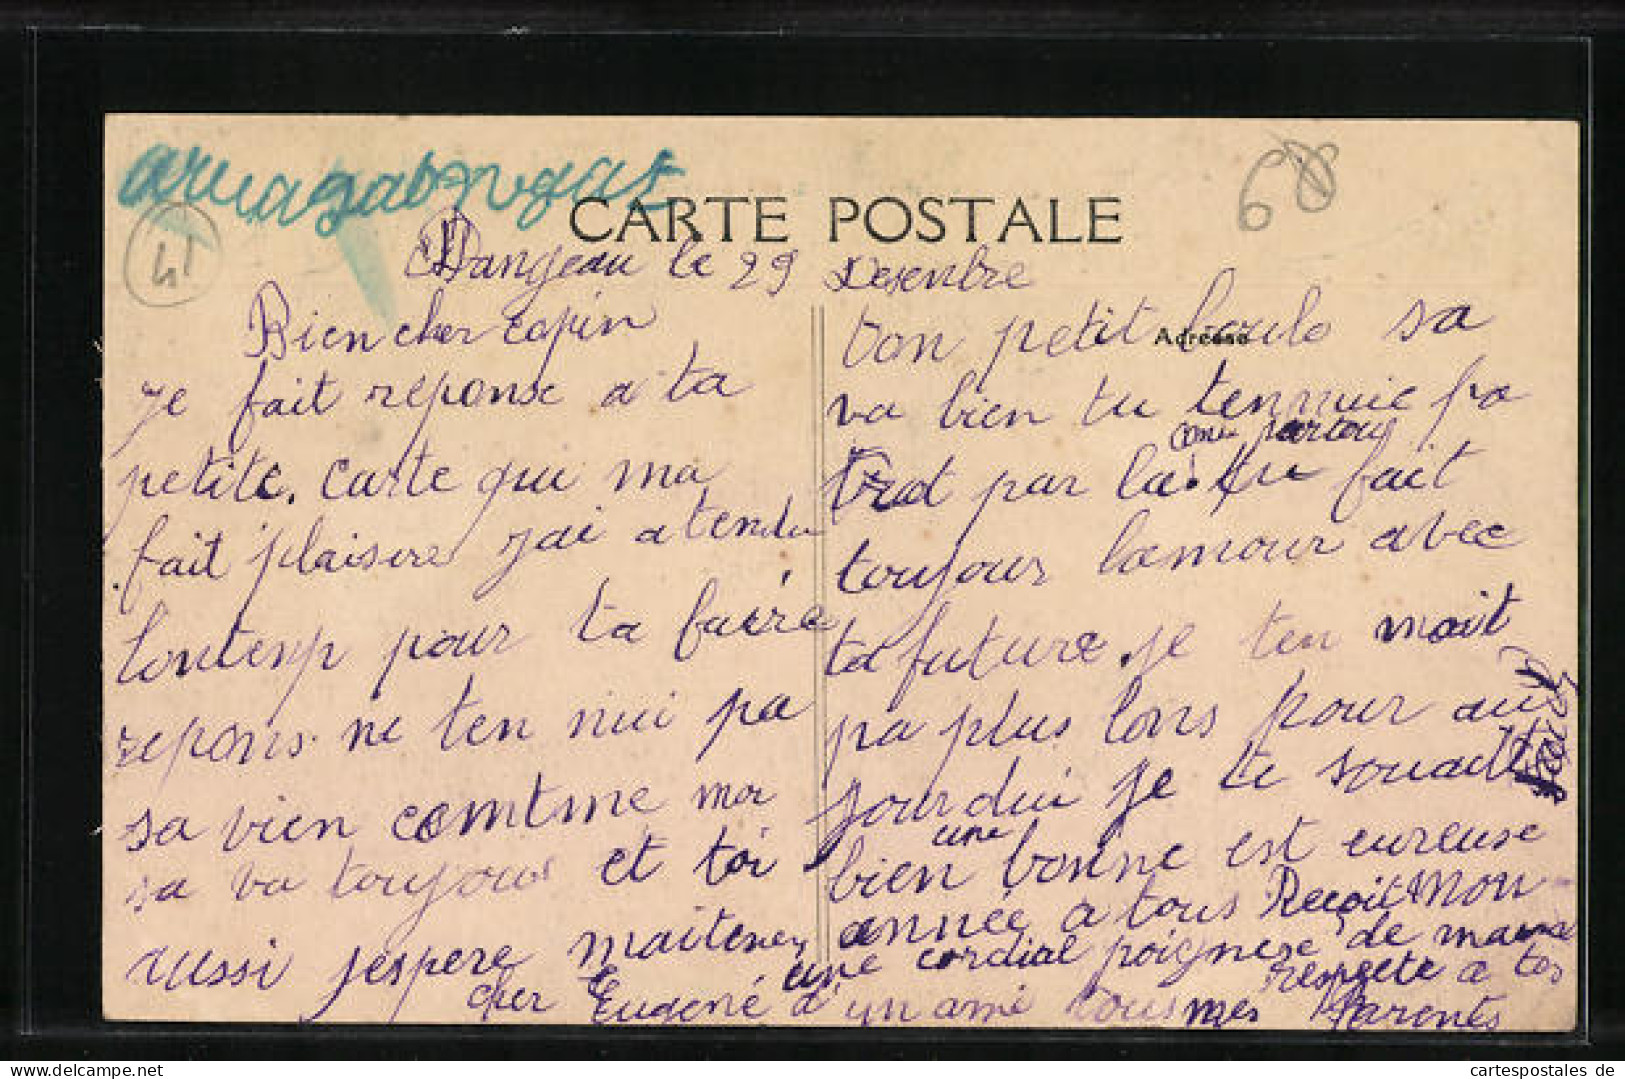 CARTE POSTALE
68
41
Dangeau le 29 Desenbre
Bien cher copin
je fait reponse a ta
petite. carte qui ma
fait plaisire jai atendu
lontenp pour ta faire
repons. ne ten nui pa
sa vien comtme moi
sa va toujour et toi
aussi jespere maitenen
cher Eugené
Adresse
ton petit loulo sa
va bien tu tennuie pa
come partou
trot par la. tu fait
toujour lamour avec
ta future. je ten mait
pa plus lons pour au
jourdui je te souaite
une
bien bonne est eureuse
année a tous Reçoit Mon
une cordial poignese de mains
d'un ami tous mes respete a tes
Parents
cartespostales de